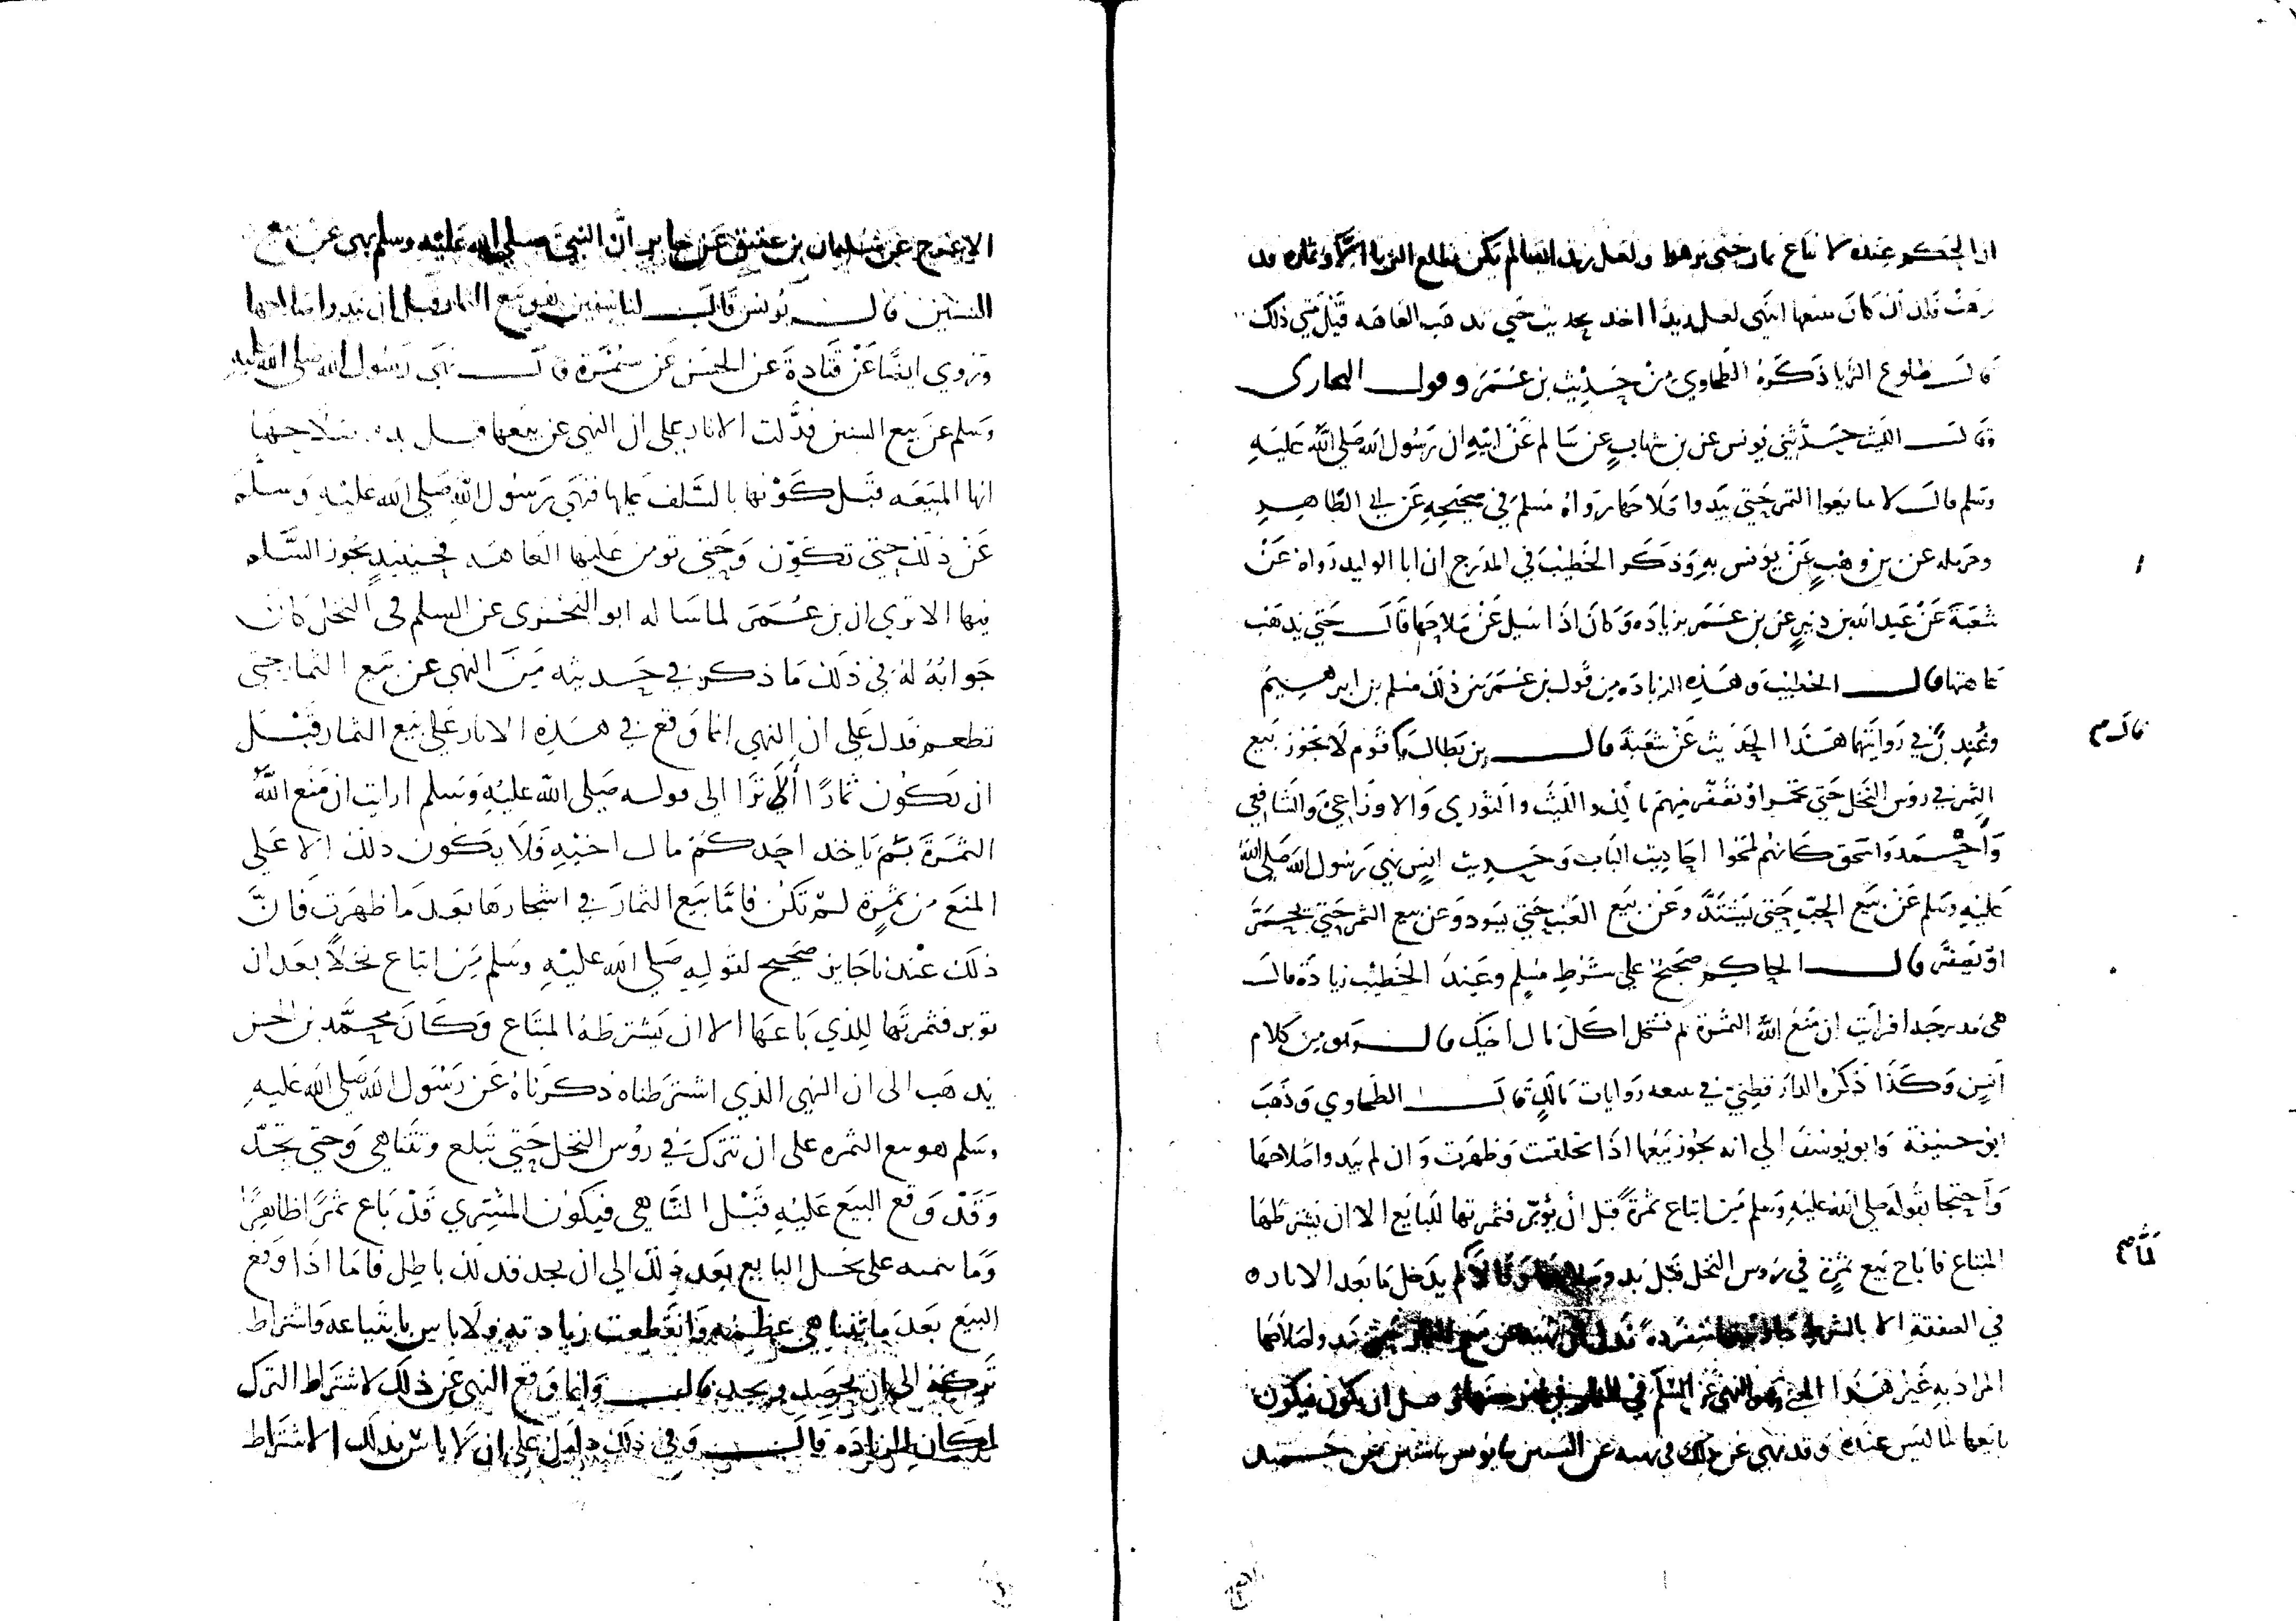 ان الحكم عنده لا تباع ثمار حتى تزهوا ولعل زيد ايضا لم يكن يطلع الثريا الا وثماره قد
زهت قلت ان كان منعها انتهى لعل زيدا اخذ بحديث حتى تذهب العاهه قيل متى ذلك
قال طلوع الثريا ذكره الطحاوي من حديث بن عمر وقول البخارى
وقال الليث حدثني يونس عن بن شهاب عن سالم عن ابيه ان رسول الله صلى الله عليه
وسلم قال لا تبايعوا الثمر حتى يبدوا صلاحها رواه مسلم في صحيحه عن ابي الطاهر
وحرمله عن بن وهب عن يونس به وذكر الخطيب في المدرج ان ابا الوليد رواه عن
شعبة عن عبد الله بن دينر عن بن عمر بزياده وكان اذا سيل عن صلاحها قال حتى تذهب
عاهتها قال الخطيب وهذه الزياده من قول بن عمر بين ذلك مسلم بن ابرهيم
وغندر في روايتهما هذا الحديث عن شعبة قال بن بطال قوم لا يجوز بيع
قال م
الثمر في روس النخل حتى تحمر او تصفر منهم مالك والليث والثوري والاوزاعي والشافعي
واحمد واسحق كانهم لمحوا احاديث الباب وحديث انس نهي رسول الله صلى الله
عليه وسلم عن بيع الحب حتى يشتد وعن بيع العنب حتى يسود وعن بيع الثمر حتى يحمر
او يصفر قال الحاكم صحيح على شرط مسلم وعند الخطيب زيادة قال
هي مدرجه افرايت ان منع الله الثمرة لم تستحل اكل مال اخيك قال وهو من كلام
انس وكذا ذكره الدارقطني في روايات مالك قال الطحاوي وذهب
ابو حنيفة وابو يوسف الى انه يجوز بيعها اذا تخلقت وظهرت وان لم يبدوا صلاحها
واحتجا بقوله صلى الله عليه وسلم من ابتاع ثمرة قبل ان يؤبر فثمرتها للبايع الا ان يشترطها
المبتاع فاباح بيع ثمرة في روس النخل قبل بدو لم يدخل ما بعد الاباره
في الصفقة الا بالشرط منفردة يبدو صلاحها
المراد به غير هذا النهي عن السلم في قبل ان يكون فيكون
بايعها لما ليس عنده وقد نهي عن ذلك في نهيه عن السنين يونس سفين عن حميد
الاعرج عن سليمان بن عتيق عن جابر ان النبي صلى الله عليه وسلم نهى عن بيع
السنين قال يونس قال لنا سفين هو بيع الثمار قبل ان يبدوا صلاحها
وتروي ايضا عن قتادة عن الحسن عن سمرة قال نهى رسول الله صلى الله عليه
وسلم عن بيع السنين فدلت الاثار على ان النهي عن بيعها قبل بدو صلاحها
انها المبيعه قبل كونها بالسلف عليها فنهى رسول الله صلى الله عليه وسلم
عن ذلك حتى تكون وحتى تومن عليها العاهه فحينيذ يجوز السلم
فيها الا تري ان بن عمر لما ساله ابو البختري عن السلم في النخل كان
جوابه له في ذلك ما ذكر في حديثه من النهي عن بيع الثمار حتى
تطعم فدل على ان النهي انما وقع في هذه الاثار على بيع الثمار قبل
ان تكون ثمارا الا ترا الى قوله صلى الله عليه وسلم ارايت ان منع الله
الثمرة بم ياخذ احدكم مال اخيه فلا يكون ذلك الا على
المنع من ثمرة لم تكن فاما بيع الثمار في اشجارها بعد ما ظهرت فان
ذلك عندنا جايز صحيح لقوله صلى الله عليه وسلم من ابتاع نخلا بعد ان
توبر فثمرتها للذي باعها الا ان يشترطه المبتاع وكان محمد بن الحسن
يذهب الى ان النهي الذي اشترطناه ذكرناه عن رسول الله صلى الله عليه
وسلم هو بيع الثمره على ان تترك في روس النخل حتى تبلغ وتتناهي وحتى تجد
وقد وقع البيع عليه قبل التناهي فيكون المشتري قد باع ثمرا ظاهرا
وما ينميه على نخل البايع بعد ذلك الى ان يجد فذلك باطل فاما اذا وقع
البيع بعد ما تناهي عظمه وانقطعت زيادته ولا باس بابتياعه واشتراط
تركه الى ان يحصد ويجد قال وانما وقع النهي عن ذلك لاشتراط الترك
لمكان الزياده قال وفي ذلك دليل على ان لا باس بذلك الاشتراط